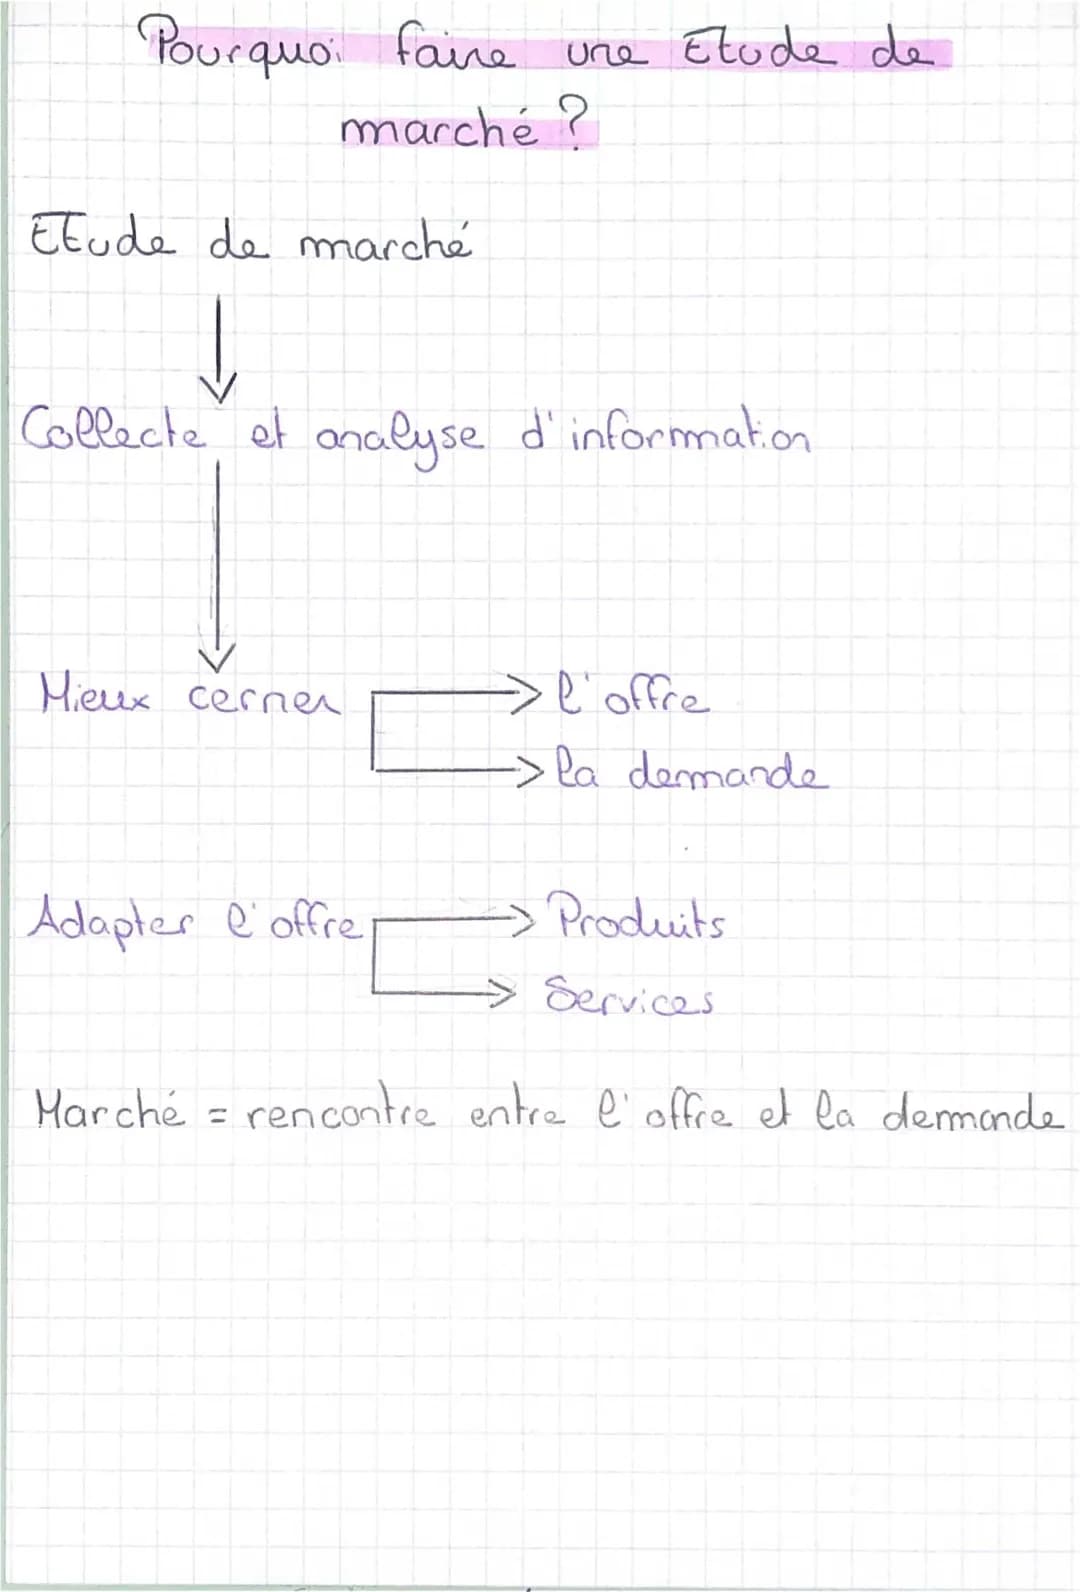 Pourquoi faire une Etude de
marché ?
Etude de marché
Collecte et analyse d'information
Mieux cerner
l'offre
la demande
Adapter l'offre
Produits
Services
Marché = rencontre entre l'offre et la demande